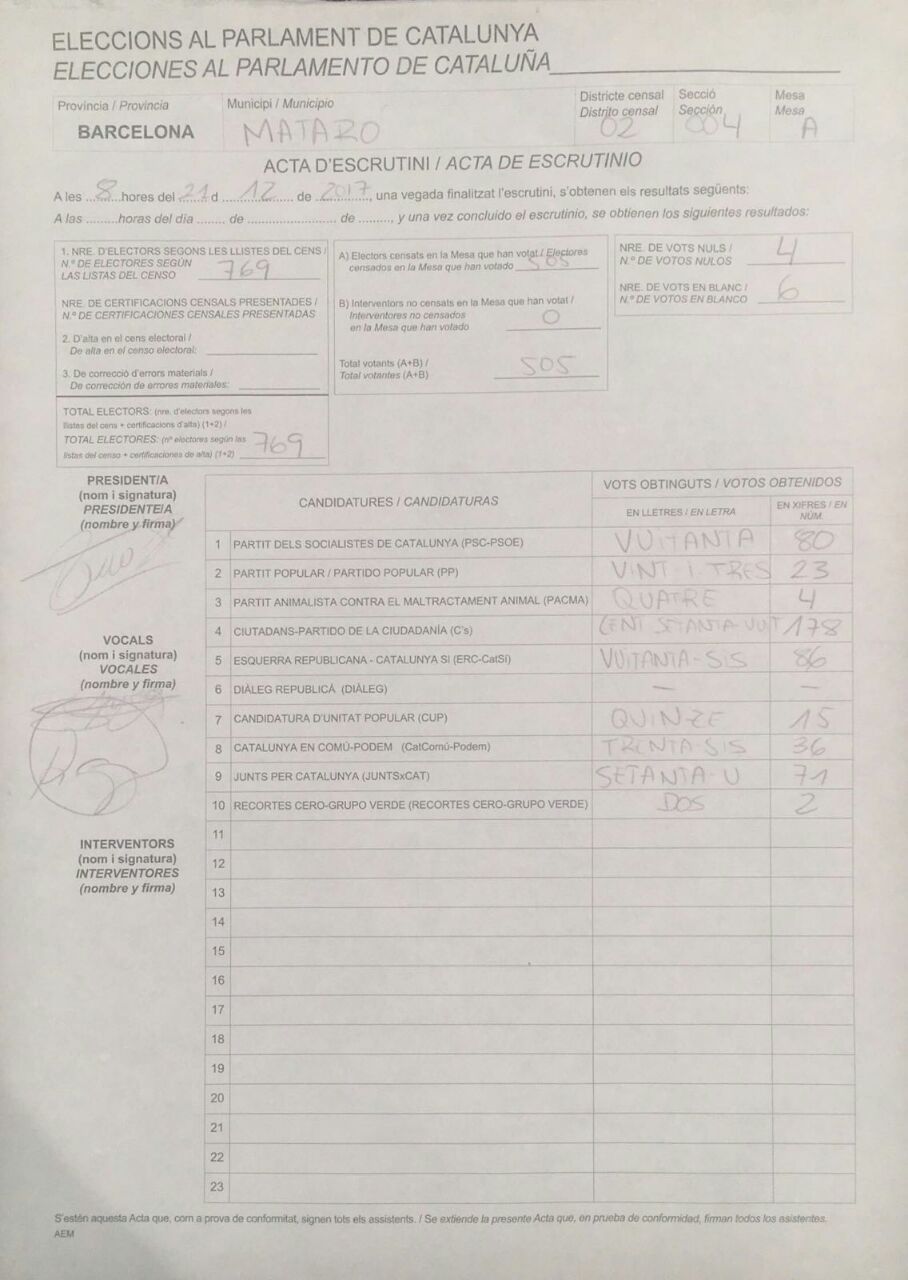 ELECCIONS AL PARLAMENT DE CATALUNYA
ELECCIONES AL PARLAMENTO DE CATALUÑA
Provincia / Provincia
BARCELONA
Municipi / Municipio
MATARO
Districte censal
Distrito censal
02
Secció
Sección
004
Mesa
Mesa
A
ACTA D'ESCRUTINI / ACTA DE ESCRUTINIO
A les ...8...hores del 21 d ...12... de ..2017.., una vegada finalitzat l'escrutini, s'obtenen els resultats següents:
A las .........horas del día ........ de ........................ de ........., y una vez concluido el escrutinio, se obtienen los siguientes resultados:
1. NRE. D'ELECTORS SEGONS LES LLISTES DEL CENS /
N.º DE ELECTORES SEGÚN
LAS LISTAS DEL CENSO 769
NRE. DE CERTIFICACIONS CENSALS PRESENTADES /
N.º DE CERTIFICACIONES CENSALES PRESENTADAS
2. D'alta en el cens electoral /
De alta en el censo electoral:
3. De correcció d'errors materials /
De corrección de errores materiales:
TOTAL ELECTORS: (nre. d'electors segons les
llistes del cens + certificacions d'alta) (1+2) /
TOTAL ELECTORES: (nº electores según las
listas del censo + certificaciones de alta) (1+2) 769
A) Electors censats en la Mesa que han votat / Electores
censados en la Mesa que han votado 505
B) Interventors no censats en la Mesa que han votat /
Interventores no censados
en la Mesa que han votado 0
Total votants (A+B) /
Total votantes (A+B) 505
NRE. DE VOTS NULS /
N.º DE VOTOS NULOS 4
NRE. DE VOTS EN BLANC /
N.º DE VOTOS EN BLANCO 6
PRESIDENT/A
(nom i signatura)
PRESIDENTE/A
(nombre y firma)
VOCALS
(nom i signatura)
VOCALES
(nombre y firma)
INTERVENTORS
(nom i signatura)
INTERVENTORES
(nombre y firma)
CANDIDATURES / CANDIDATURAS
VOTS OBTINGUTS / VOTOS OBTENIDOS
EN LLETRES / EN LETRA
EN XIFRES / EN
NÚM.
1 PARTIT DELS SOCIALISTES DE CATALUNYA (PSC-PSOE) VUITANTA 80
2 PARTIT POPULAR / PARTIDO POPULAR (PP) VINT-I-TRES 23
3 PARTIT ANIMALISTA CONTRA EL MALTRACTAMENT ANIMAL (PACMA) QUATRE 4
4 CIUTADANS-PARTIDO DE LA CIUDADANÍA (C's) CENT SETANTA-VUIT 178
5 ESQUERRA REPUBLICANA - CATALUNYA SI (ERC-CatSI) VUITANTA-SIS 86
6 DIÀLEG REPUBLICÀ (DIÀLEG) — —
7 CANDIDATURA D'UNITAT POPULAR (CUP) QUINZE 15
8 CATALUNYA EN COMÚ-PODEM (CatComú-Podem) TRENTA-SIS 36
9 JUNTS PER CATALUNYA (JUNTSxCAT) SETANTA-U 71
10 RECORTES CERO-GRUPO VERDE (RECORTES CERO-GRUPO VERDE) DOS 2
11
12
13
14
15
16
17
18
19
20
21
22
23
S'estén aquesta Acta que, com a prova de conformitat, signen tots els assistents. / Se extiende la presente Acta que, en prueba de conformidad, firman todos los asistentes.
AEM